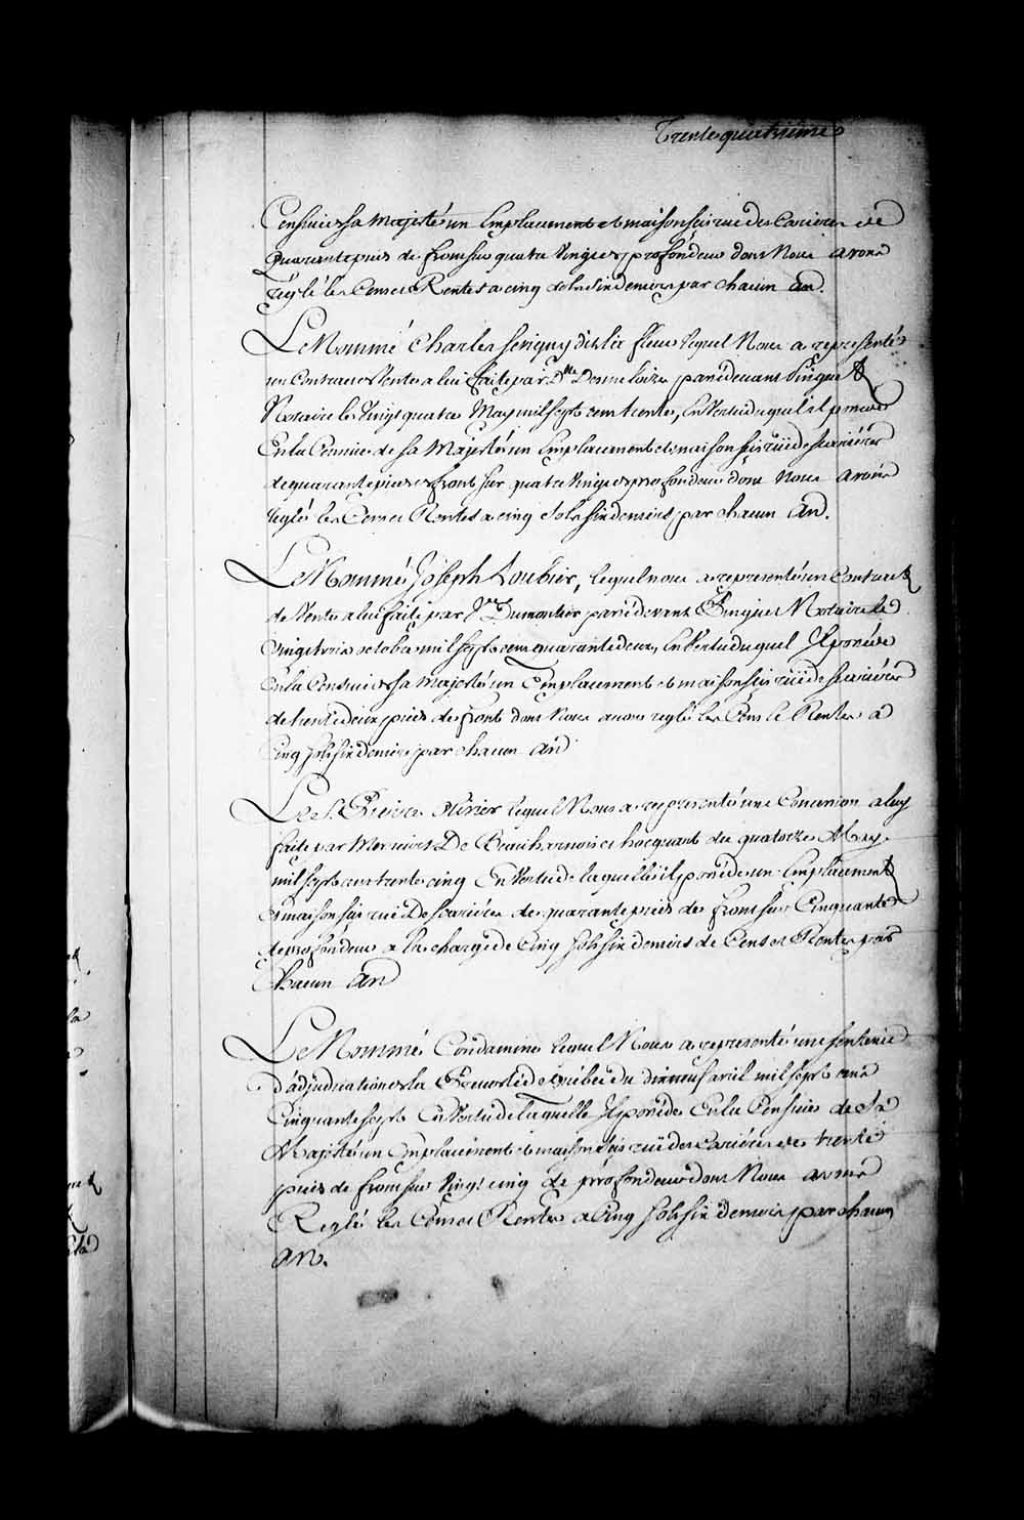 Trente quatrieme
Censive de sa Majesté un Emplacement et maison scis rue des Carieres de
Quarante pieds de front sur quatre Vingt de profondeur dont Nous avons
réglé les Cens et Rentes a cinq sols six deniers par chacun an.
Le Nommé Charles Sevigny dit la fleur lequel Nous a representé
un Contract de Vente a lui faite par D.lle Desmeloizes pardevant Pinguet
Notaire le Vingt quatre May mil sept cent trente, En Vertu duquel il possede
En la Censive de sa Majesté un Emplacement et maison scis rüe des cariéres
de quarante pieds de front sur quatre Vingt de profondeur dont Nous avons
reglé les Cens et Rentes a cinq sols six deniers par chacun An.
Le Nommé Joseph Loubier, lequel nous a representé un Contract
de Vente a lui faite par Dumontier pardevant Pinguet Notaire le
vingt trois octobre mil sept cent quarante deux, En Vertu duquel Il possede
En la Censive de sa Majesté un Emplacement et maison scis rüe des cariéres
de trente deux pieds de front dont Nous avons reglé les Cens et Rentes a
Cinq sols six deniers par chacun An
Le S.r Pierre lequel Nous a representé une Concession a luy
faite par Messieurs De Beauharnois et hocquart du quatorze May
mil sept cent trente cinq En Vertu de laquelle il possede un Emplacement
et maison scis rüe Des cariéres de quarante pieds de front sur Cinquante
de profondeur a la charge de Cinq sols six deniers de Cens et Rentes par
Chacun An
Le Nommé Condamine lequel Nous a representé une sentence
d'adjudication de la Prevosté de Quebec du dix neuf avril mil sept cent
Cinquante sept En Vertu de laquelle Il possede En la Censive de Sa
Majesté un Emplacement et maison scis rüe des Cariéres de trente
pieds de front sur Vingt cinq de profondeur dont Nous avons
Reglé les Cens et Rentes a Cinq sols six deniers par chacun
An.